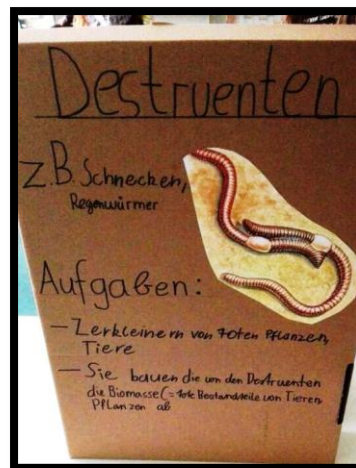 Destruenten
z.B. Schnecken,
Regenwürmer
Aufgaben:
- Zerkleinern von toten Pflanzen,
Tiere
- Sie bauen die von den Destruenten
die Biomasse (= tote Bestandteile von Tieren,
Pflanzen ab